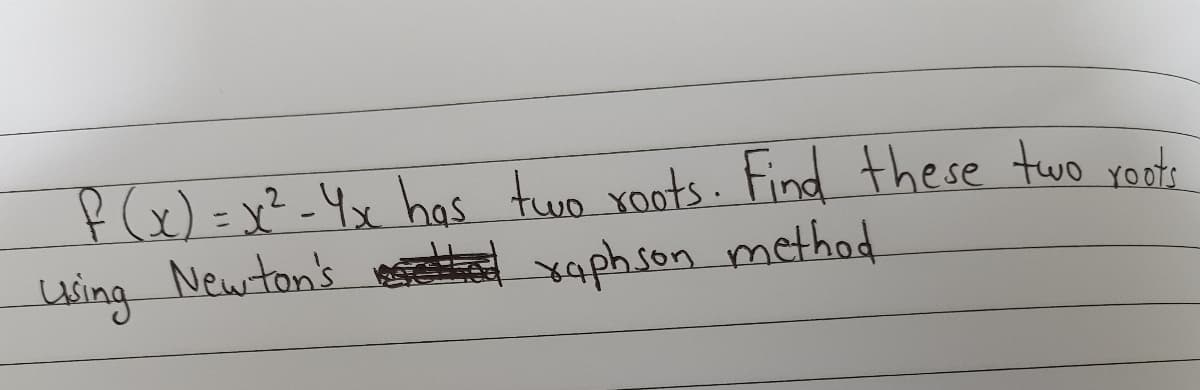 f(x) = x² - 4x has two roots. Find these two roots
using Newton's raphson method